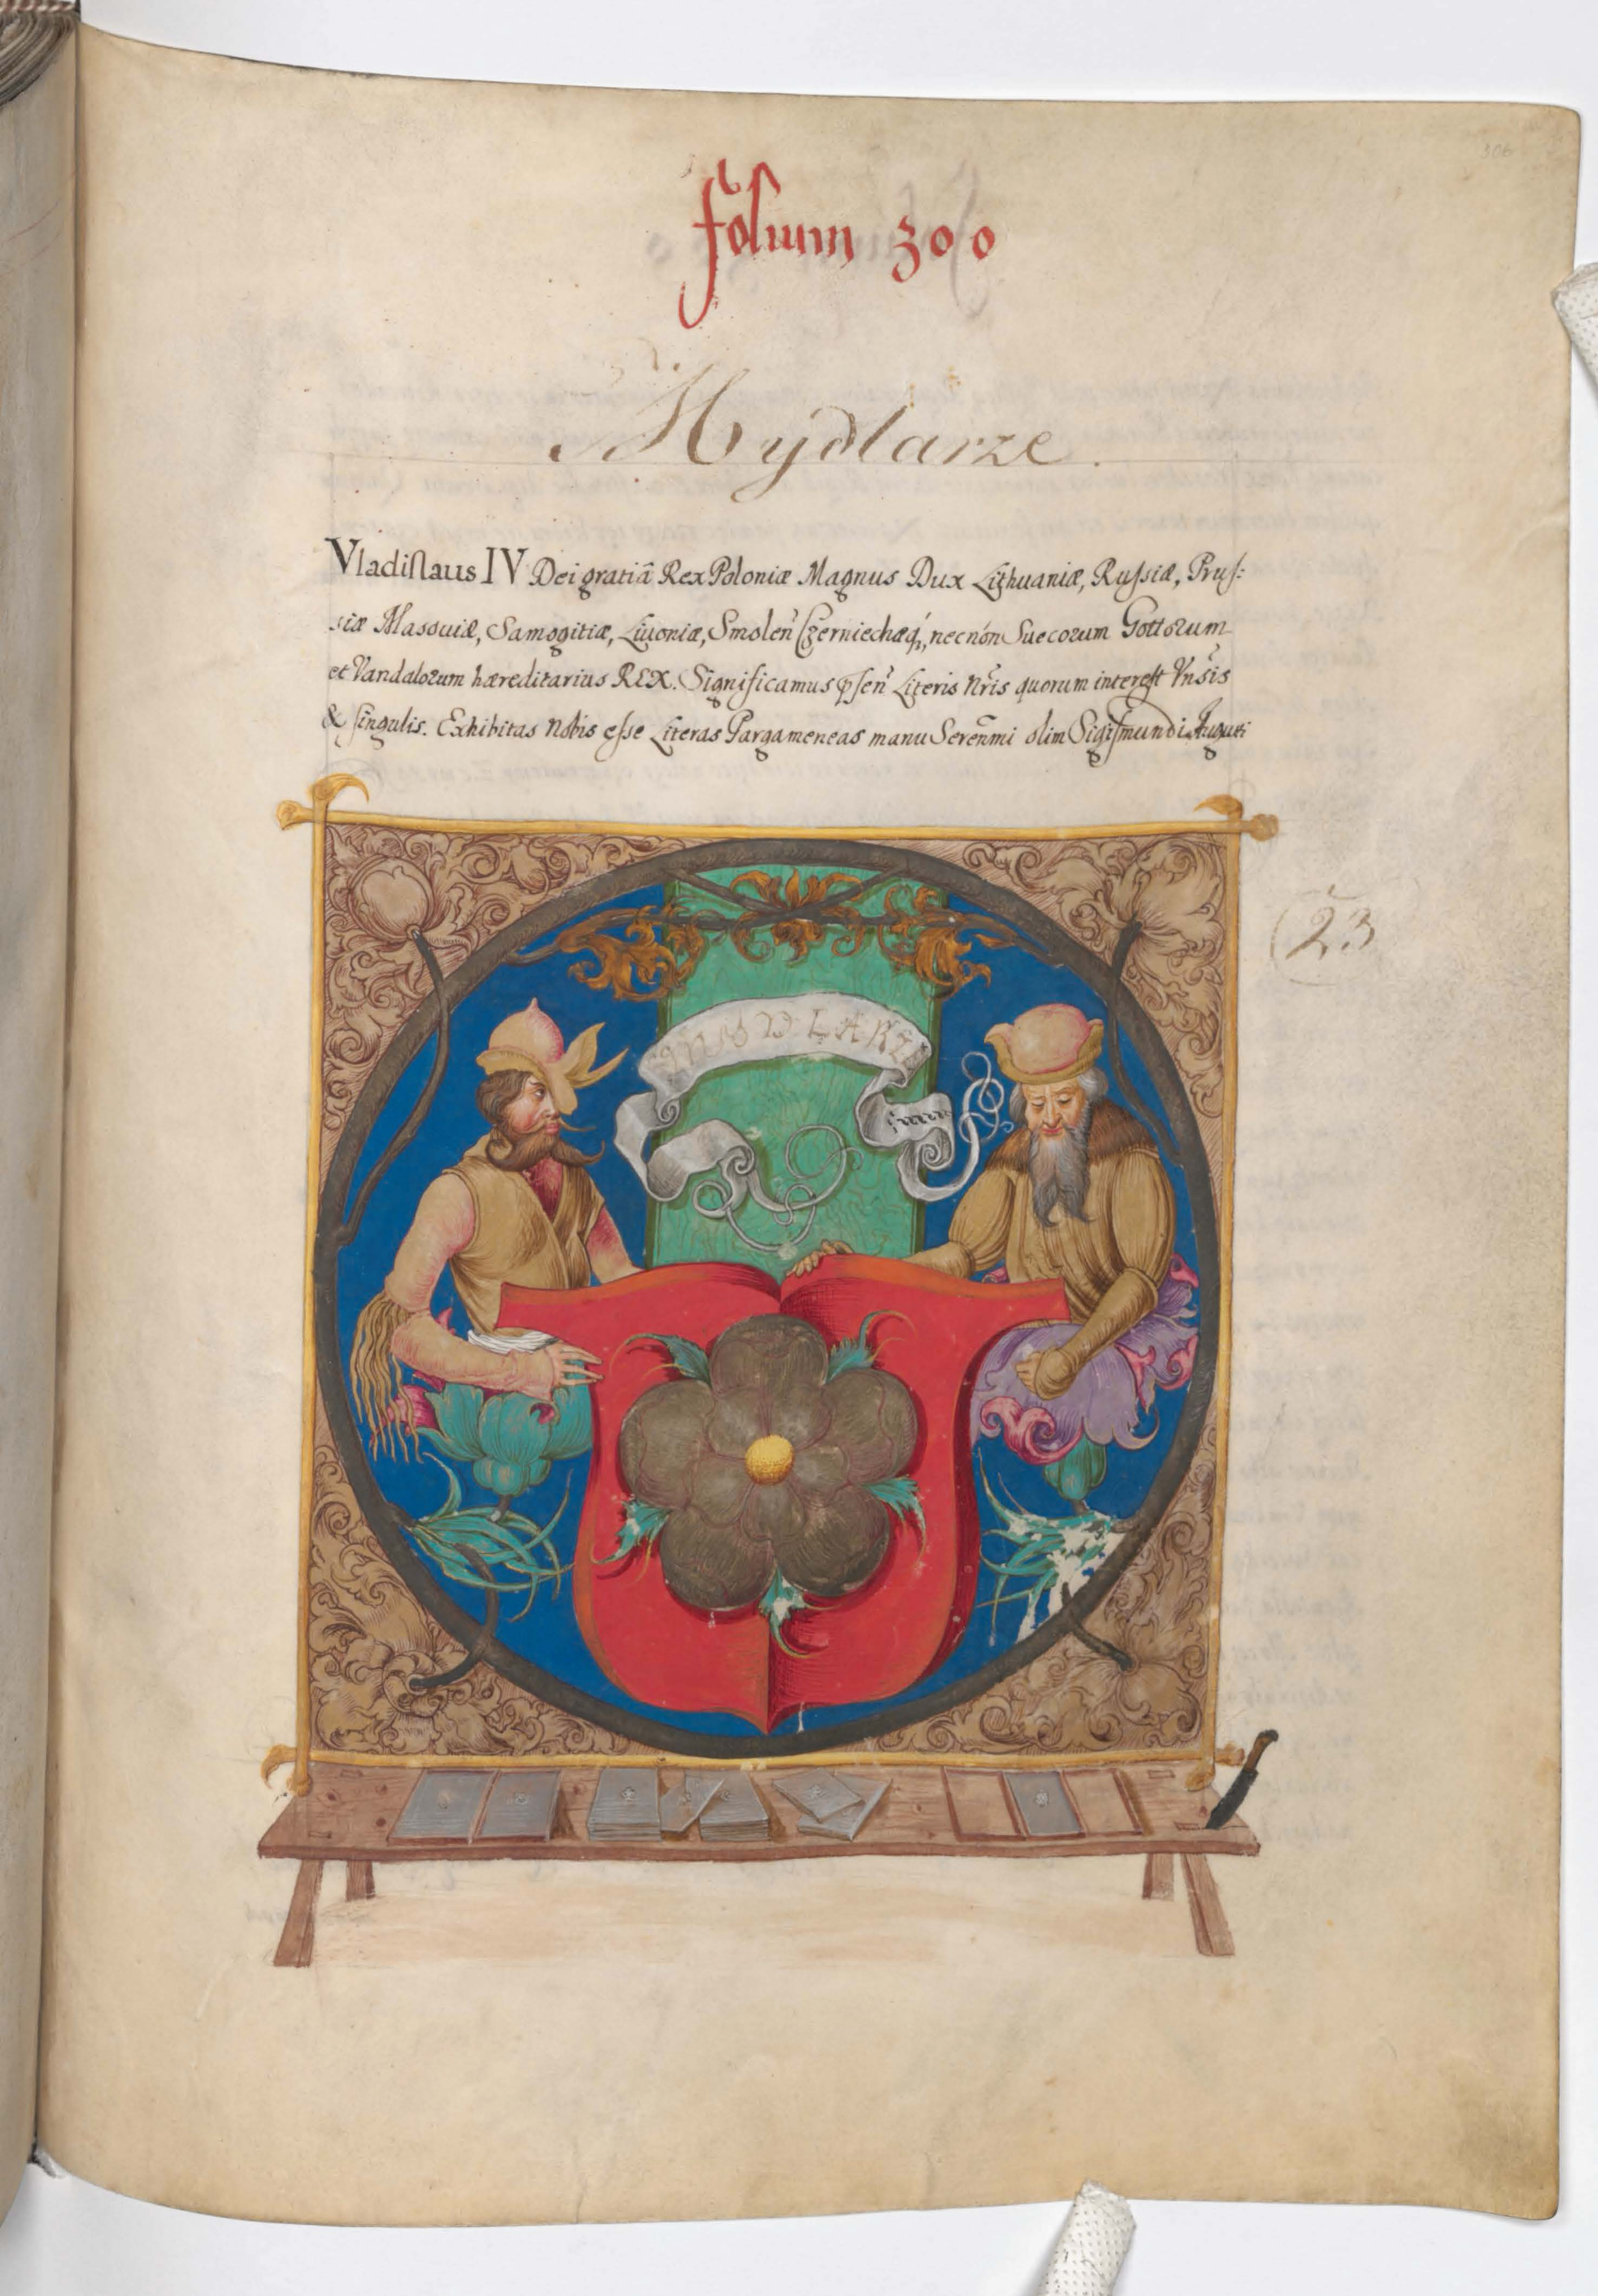 folium 300
Mydlarze.
Vladislaus IV Dei gratiâ Rex Poloniæ Magnus Dux Lithuaniæ, Russiæ, Prus:
siæ Masouiæ, Samogitiæ, Liuoniæ, Smolen̄ Czerniechoæq́, necnón Suecorum Gottorum
et Vandalorum hæreditarius REX. Significamus p̄sen̄ Literis Nr̄is quorum interest Vn̄sis
& singulis. Exhibitas Nobis esse Literas Pargameneas manu Seren̄mi olim Sigismundi Augusti
(23
MYDLARZE